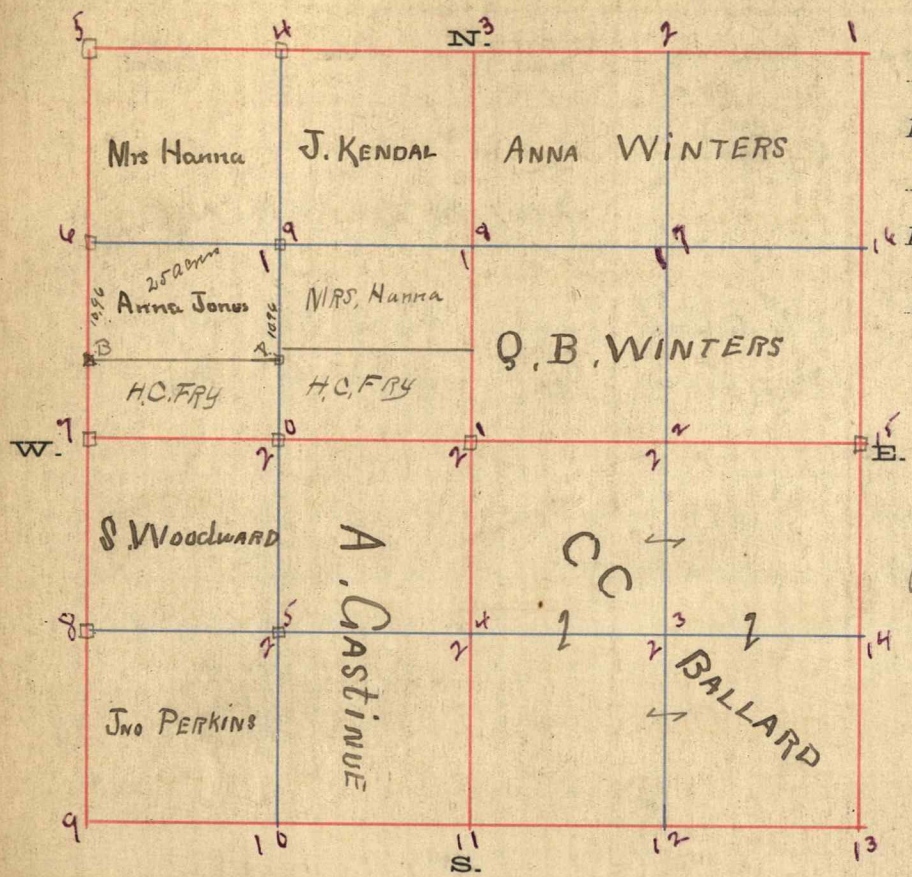 5 4 N. 3 2 1
Mrs Hanna J. KENDAL ANNA WINTERS
6 19 18 17 16
25 acres
10.96 Anna Jones 10.96 MRS, Hanna
B
O. B. WINTERS
H.C. FRY H.C. FRY
W. 7 20 21 22 15 E.
S. WOODWARD A. GASTINUE CC BALLARD
8 25 24 23 14
JNO PERKINS
9 10 11 12 13
S.